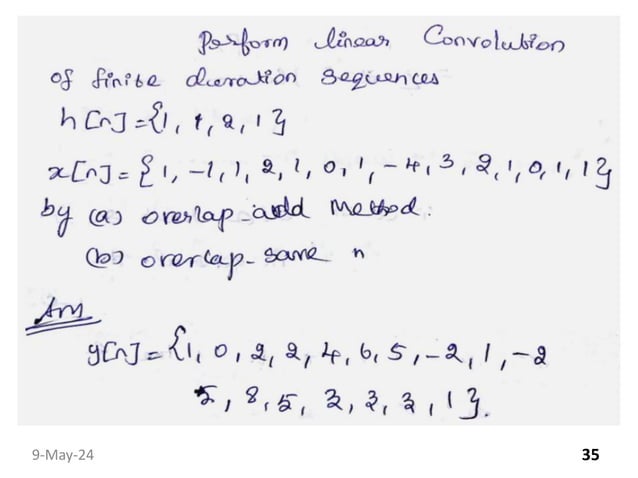 Perform linear Convolution
of finite duration sequences
h[n]={1, 1, 2, 1}
x[n]={1, -1, 1, 2, 1, 0, 1, -4, 3, 2, 1, 0, 1, 1}
by (a) overlap-add Method.
(b) overlap-save "
Ans
y[n]={1, 0, 2, 2, 4, 6, 5, -2, 1, -2
5, 8, 5, 3, 3, 3, 1}.
9-May-24
35